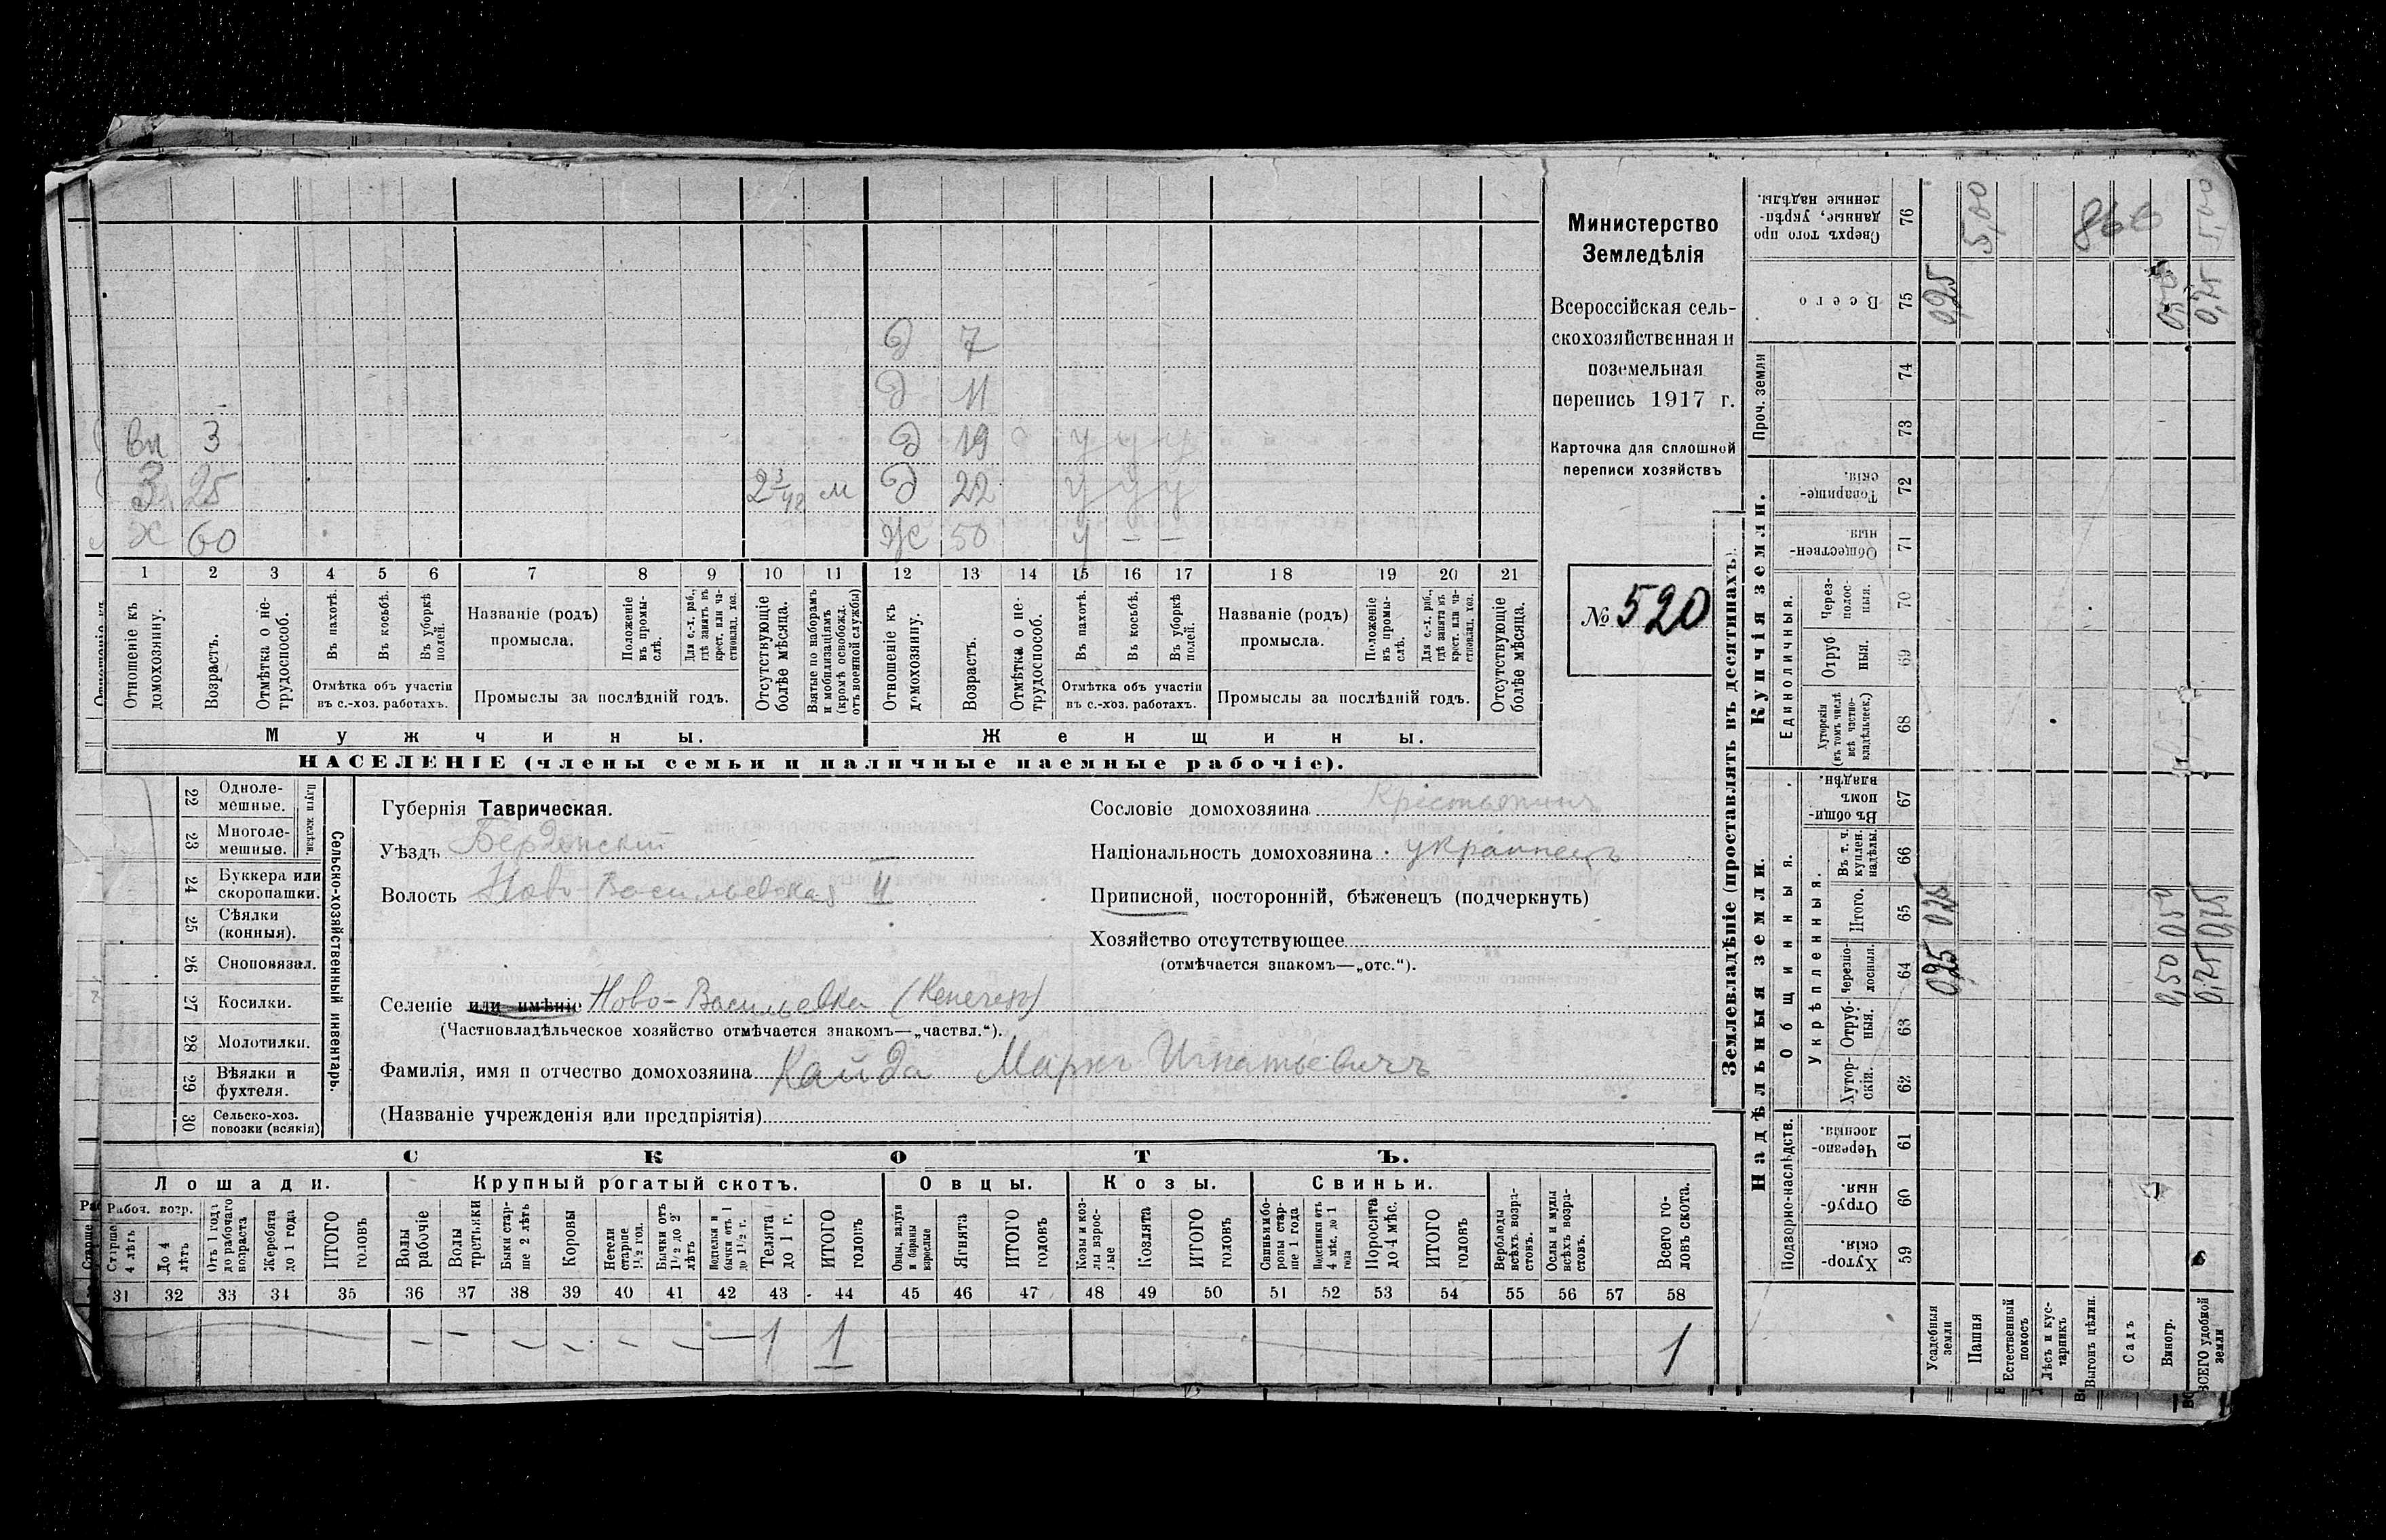 Министерство
Земледѣлія
Всероссійская сель-
скохозяйственная и
поземельная
перепись 1917 г.
Карточка для сплошной
переписи хозяйствъ
№ 520
д 7
д 11
вн 3 д 19 у у у
З 25 2 3/42 м д 22 у у у
х 60 ж 50 у – –
1 2 3 4 5 6 7 8 9 10 11 12 13 14 15 16 17 18 19 20 21
Отношеніе къ домохозяину.
Возрастъ.
Отмѣтка о не-трудоспособ.
Въ пахотѣ.
Въ косьбѣ.
Въ уборкѣ полей.
Отмѣтка объ участіи
въ с.-хоз. работахъ.
Названіе (родъ)
промысла.
Положеніе въ промы-слѣ.
Для с.-х. раб., гдѣ занятъ въ крест. или ча-стновлад. хоз.
Промыслы за послѣдній годъ.
Отсутствующіе болѣе мѣсяца.
Взятые по наборамъ и мобилизаціямъ (кромѣ освобожд. отъ военной службы)
Отношеніе къ домохозяину.
Возрастъ.
Отмѣтка о не-трудоспособ.
Въ пахотѣ.
Въ косьбѣ.
Въ уборкѣ полей.
Отмѣтка объ участіи
въ с.-хоз. работахъ.
Названіе (родъ)
промысла.
Положеніе въ промы-слѣ.
Для с.-х. раб., гдѣ занята въ крест. или ча-стновлад. хоз.
Промыслы за послѣдній годъ.
Отсутствующіе болѣе мѣсяца.
Мужчины. Женщины.
НАСЕЛЕНІЕ (члены семьи и наличные наемные рабочіе).
Сельско-хозяйственный инвентарь.
Плуги желѣзн.
22 Одноле-мешные.
23 Многоле-мешные.
24 Буккера или скоропашки.
25 Сѣялки (конныя).
26 Сноповязал.
27 Косилки.
28 Молотилки.
29 Вѣялки и фухтеля.
30 Сельско-хоз. повозки (всякія)
Губернія Таврическая.
Уѣздъ Бердянскій
Волость Ново-Васильевская II
Сословіе домохозяина Крестьянинъ
Національность домохозяина украинецъ
Приписной, посторонній, бѣженецъ (подчеркнуть)
Хозяйство отсутствующее
(отмѣчается знакомъ—„отс.“).
Селеніе или имѣніе Ново-Васильевка
(Частновладѣльческое хозяйство отмѣчается знакомъ—„частвл.“).
Фамилія, имя и отчество домохозяина Кайда Маркъ Игнатьевичъ
(Названіе учрежденія или предпріятія)
СКОТЪ.
Лошади. Крупный рогатый скотъ. Овцы. Козы. Свиньи.
Рабоч. возр.
Старше 4 лѣтъ
До 4 лѣтъ
Отъ 1 года до рабочаго возраста
Жеребята до 1 года
ИТОГО головъ
Волы рабочіе
Волы третьяки
Быки стар-ше 2 лѣтъ
Коровы
Нетели старше 1½ год.
Бычки отъ 1½ до 2 лѣтъ
Подтелки и бычки отъ 1 до 1½ г.
Телята до 1 г.
ИТОГО головъ
Овцы, валухи и бараны взрослые
Ягнята
ИТОГО головъ
Козы и коз-лы взрос-лые
Козлята
ИТОГО головъ
Свиньи бо-ровы стар-ше 1 года
Подсвинки отъ 4 мѣс. до 1 года
Поросята до 4 мѣс.
ИТОГО головъ
Верблюды всѣхъ возра-стовъ.
Ослы и мулы всѣхъ возра-стовъ.
Всего го-ловъ скота.
31 32 33 34 35 36 37 38 39 40 41 42 43 44 45 46 47 48 49 50 51 52 53 54 55 56 57 58
– – – – – – – 1 1 1
Землевладѣніе (проставлять въ десятинахъ).
Купчія земли.
Надѣльныя земли.
Сверхъ того про-данные, укрѣп-ленные надѣлы. 76 5,00 5,00
Всего 75 0,25 0,50 0,75
Проч. земли 74
73
Товарище-скія. 72
Обществен-ныя 71
Единоличныя.
Через-полос-ныя. 70
Отруб-ныя. 69
Хуторскія (въ томъ числѣ всѣ частно-владѣльческ.) 68
Общинныя.
Въ общи-номъ владѣн. 67
Укрѣпленныя.
Въ т. ч. куплен. надѣлы. 66
Итого. 65 0,25 0,50 0,75
Черезпо-лосныя. 64 0,25 0,50 0,75
Отруб-ныя. 63
Хутор-скія. 62
Подворно-наслѣдств.
Черезпо-лосныя. 61
Отруб-ныя. 60
Хутор-скія. 59
Усадебныя земли
Пашня
Естественный покосъ
Лѣсъ и кус-тарникъ
Выгонъ цѣлин.
Садъ
Виногр.
ВСЕГО удобной земли